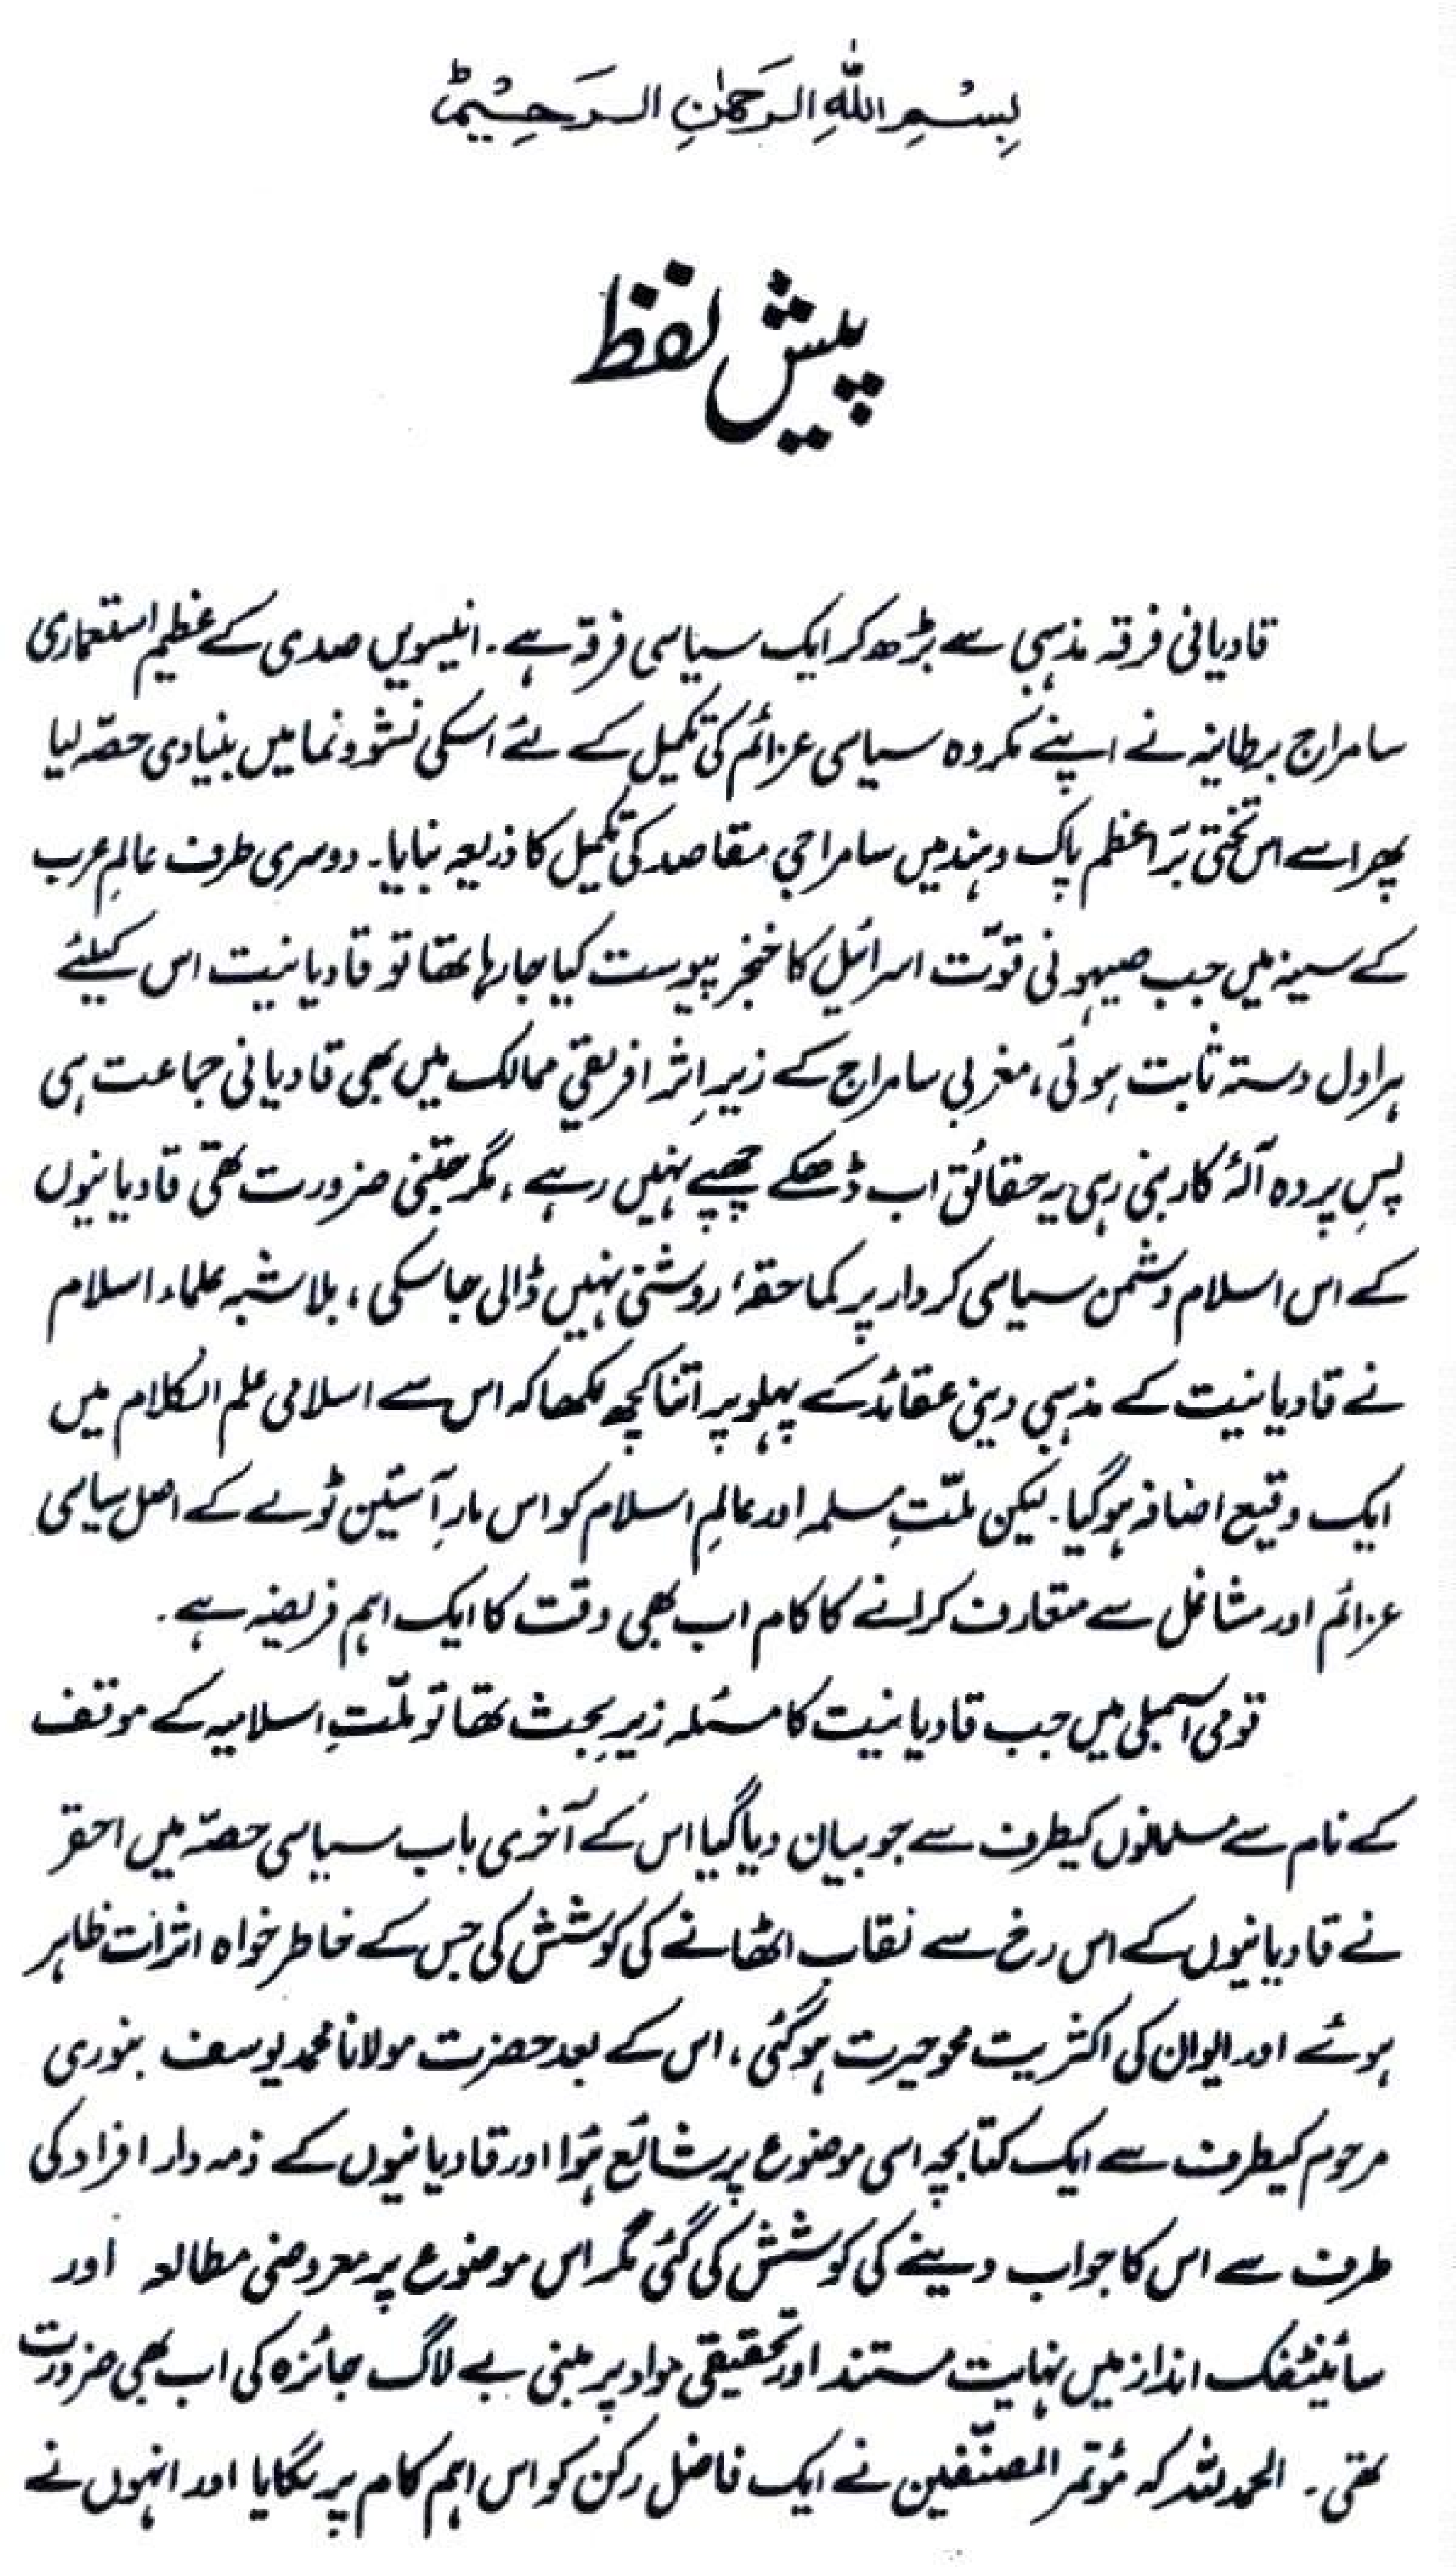 بِسْمِ اللهِ الرَحمٰنِ الرَحِيْمِؕ
پیش لفظ
قادیانی فرقہ مذہبی سے بڑھ کر ایک سیاسی فرقہ ہے۔ انیسویں صدی کے عظیم استعماری
سامراج برطانیہ نے اپنے مکروہ سیاسی عزائم کی تکمیل کے لئے اسکی نشوونما میں بنیادی حصّہ لیا
پھر اسے اس تختی برِّاعظم پاک وہند میں سامراجی مقاصد کی تکمیل کا ذریعہ بنایا۔ دوسری طرف عالمِ عرب
کے سینہ میں جب صیہونی قوّت اسرائیل کا خنجر پیوست کیا جا رہا تھا تو قادیانیت اس کیلئے
ہراول دستہ ثابت ہوئی، مغربی سامراج کے زیرِ اثر افریقی ممالک میں بھی قادیانی جماعت ہی
پسِ پردہ آلۂ کار بنی رہی یہ حقائق اب ڈھکے چھپے نہیں رہے، مگر جتنی ضرورت تھی قادیانیوں
کے اس اسلام دشمن سیاسی کردار پر کماحقہٗ روشنی نہیں ڈالی جا سکی، بلا شبہ علماء اسلام
نے قادیانیت کے مذہبی دینی عقائد کے پہلو پر اتنا کچھ لکھا کہ اس سے اسلامی علم الکلام میں
ایک وقیع اضافہ ہوگیا۔ لیکن ملّتِ مسلمہ اور عالمِ اسلام کو اس مارِ آستین ٹولے کے اصل سیاسی
عزائم اور مشاغل سے متعارف کرانے کا کام اب بھی وقت کا ایک اہم فریضہ ہے۔
قومی اسمبلی میں جب قادیانیت کا مسئلہ زیرِ بحث تھا تو ملّتِ اسلامیہ کے موقف
کے نام سے مسلمانوں کیطرف سے جو بیان دیا گیا اس کے آخری باب سیاسی حصّہ میں احقر
نے قادیانیوں کے اس رخ سے نقاب اٹھانے کی کوشش کی جس کے خاطر خواہ اثرات ظاہر
ہوئے اور ایوان کی اکثریت محو حیرت ہوگئی، اس کے بعد حضرت مولانا محمد یوسف بنوری
مرحوم کیطرف سے ایک کتابچہ اسی موضوع پر شائع ہُوا اور قادیانیوں کے ذمہ دار افراد کی
طرف سے اس کا جواب دینے کی کوشش کی گئی مگر اس موضوع پر معروضی مطالعہ اور
سائینٹفک انداز میں نہایت مستند اور تحقیقی مواد پر مبنی بے لاگ جائزہ کی اب بھی ضرورت
تھی۔ الحمد للہ کہ مؤتمر المصنّفین نے ایک فاضل رکن کو اس اہم کام پر لگایا اور انہوں نے